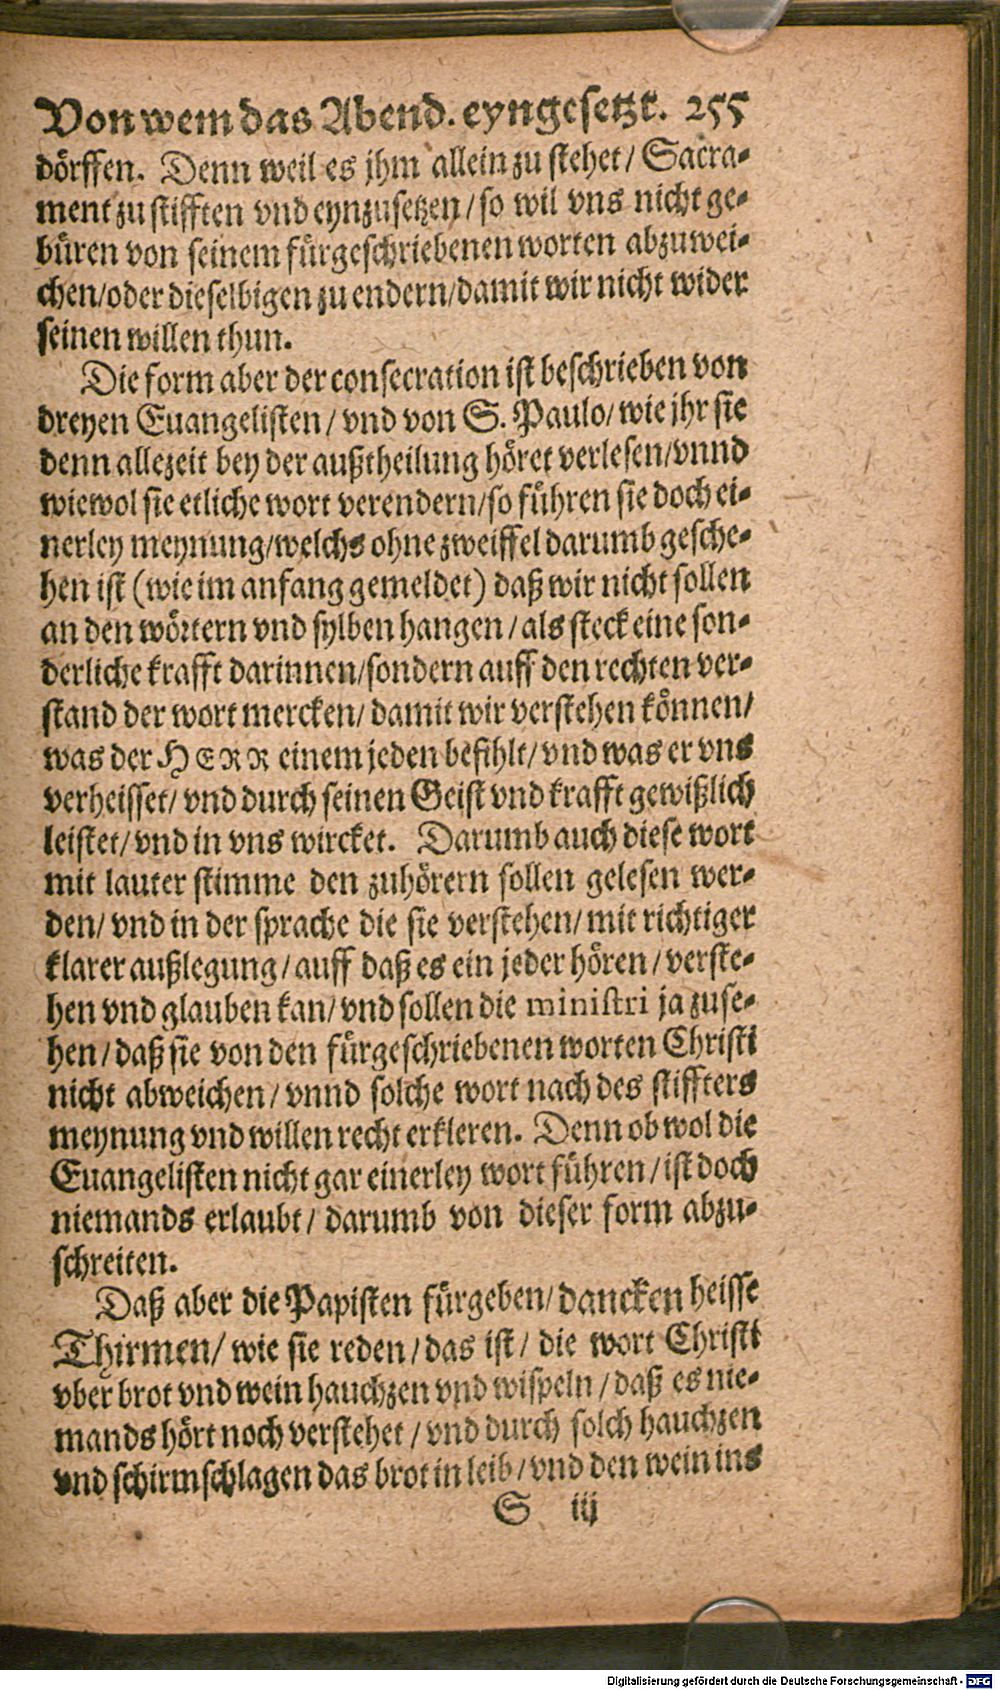 Von wem das Abend. eyngesetzt. 255
dörffen. Denn weil es jhm allein zu stehet/ Sacra-
ment zu stifften vnd eynzusetzen/ so wil vns nicht ge-
büren von seinem fürgeschriebenen worten abzuwei-
chen/ oder dieselbigen zu endern/ damit wir nicht wider
seinen willen thun.
Die form aber der consecration ist beschrieben von
dreyen Euangelisten/ vnd von S. Paulo/ wie jhr sie
denn allezeit bey der außtheilung höret verlesen/ vnnd
wiewol sie etliche wort verendern/ so führen sie doch ei-
nerley meynung/ welchs ohne zweiffel darumb gesche-
hen ist (wie im anfang gemeldet) daß wir nicht sollen
an den wörtern vnd sylben hangen/ als steck eine son-
derliche krafft darinnen/ sondern auff den rechten ver-
stand der wort mercken/ damit wir verstehen können/
was der HERR einem jeden befihlt/ vnd was er vns
verheisset/ vnd durch seinen Geist vnd krafft gewißlich
leistet/ vnd in vns wircket. Darumb auch diese wort
mit lauter stimme den zuhörern sollen gelesen wer-
den/ vnd in der sprache die sie verstehen/ mit richtiger
klarer außlegung/ auff daß es ein jeder hören/ verste-
hen vnd glauben kan/ vnd sollen die ministri ja zuse-
hen/ daß sie von den fürgeschriebenen worten Christi
nicht abweichen/ vnnd solche wort nach des stiffters
meynung vnd willen recht erkleren. Denn ob wol die
Euangelisten nicht gar einerley wort führen/ ist doch
niemands erlaubt/ darumb von dieser form abzu-
schreiten.
Daß aber die Papisten fürgeben/ dancken heisse
Thirmen/ wie sie reden/ das ist/ die wort Christi
vber brot vnd wein hauchzen vnd wispeln/ daß es nie-
mands hört noch verstehet/ vnd durch solch hauchzen
vnd schirmschlagen das brot in leib/ vnd den wein ins
S iij
Digitalisierung gefördert durch die Deutsche Forschungsgemeinschaft - DFG